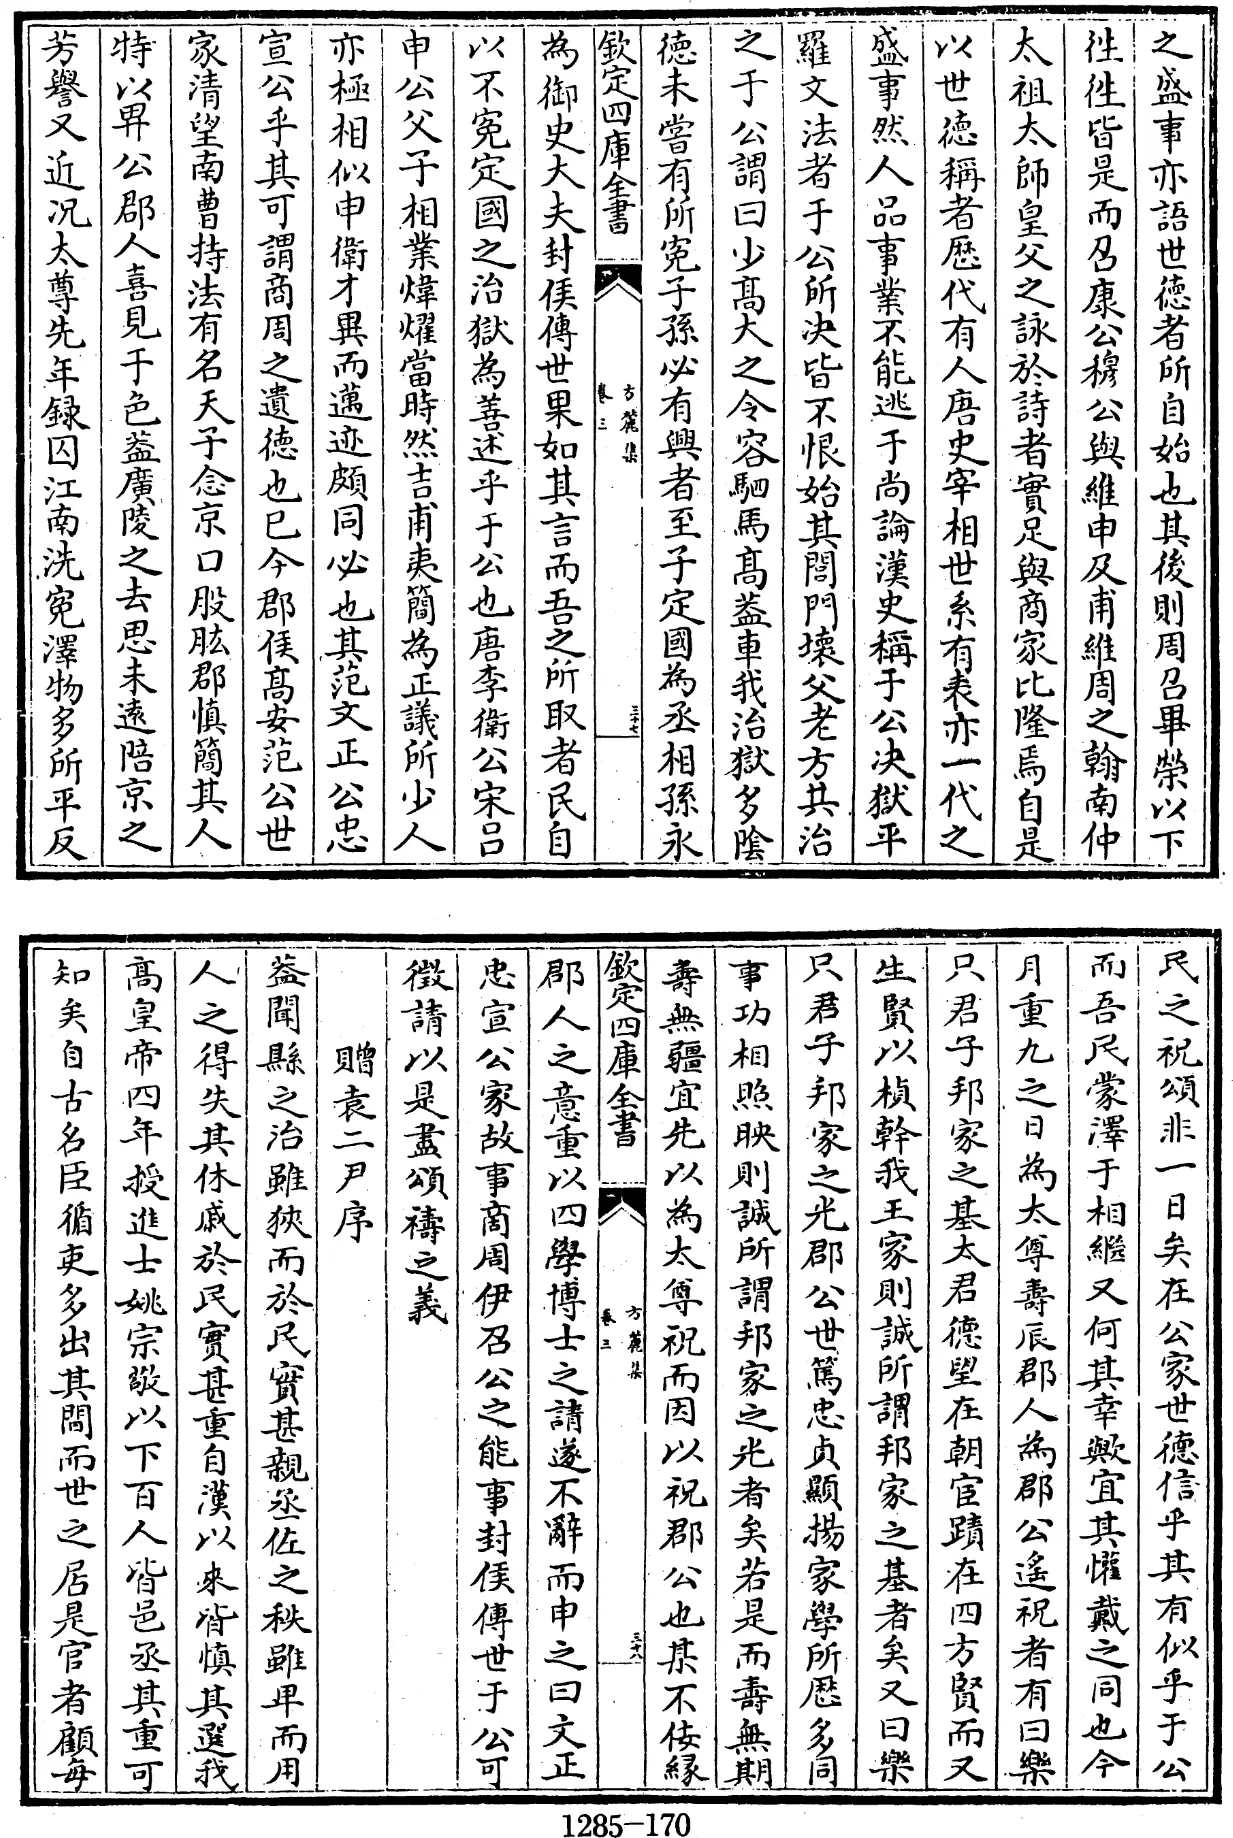 之盛事亦語世德者所自始也其後則周召畢榮以下
徃徃皆是而召康公穆公與維申及甫維周之翰南仲
太祖太師皇父之詠於詩者實足與商家比隆焉自是
以世德稱者歷代有人唐史宰相世系有表亦一代之
盛事然人品事業不能逃于尚論漢史稱于公决獄平
羅文法者于公所决皆不恨始其閭門壞父老方共治
之于公謂曰少髙大之令容駟馬髙葢車我治獄多陰
德未嘗有所寃子孫必有興者至子定國為丞相孫永
欽定四庫全書
方麓集
卷三
三十七
為御史大夫封侯傳世果如其言而吾之所取者民自
以不寃定國之治獄為善述乎于公也唐李衛公宋呂
申公父子相業煒燿當時然吉甫夷簡為正議所少人
亦極相似申衛才異而邁迹頗同必也其范文正公忠
宣公乎其可謂商周之遺德也已今郡侯髙安范公世
家清望南曹持法有名天子念京口股肱郡慎簡其人
特以畀公郡人喜見于色葢廣陵之去思未遠陪京之
芳譽又近况太尊先年録囚江南洗寃澤物多所平反
民之祝頌非一日矣在公家世德信乎其有似乎于公
而吾民蒙澤于相繼又何其幸歟宜其懽戴之同也今
月重九之日為太尊壽辰郡人為郡公遙祝者有曰樂
只君子邦家之基太君德望在朝宦蹟在四方賢而又
生賢以楨幹我王家則誠所謂邦家之基者矣又曰樂
只君子邦家之光郡公世篤忠貞顯揚家學所歷多同
事功相照映則誠所謂邦家之光者矣若是而壽無期
壽無疆宜先以為太尊祝而因以祝郡公也某不佞縁
欽定四庫全書
方麓集
卷三
三十八
郡人之意重以四學博士之請遂不辭而申之曰文正
忠宣公家故事商周伊召公之能事封侯傳世于公可
徵請以是盡頌禱之義
贈袁二尹序
葢聞縣之治雖狹而於民實甚親丞佐之秩雖卑而用
人之得失其休戚於民實甚重自漢以來皆慎其選我
髙皇帝四年授進士姚宗敬以下百人皆邑丞其重可
知矣自古名臣循吏多出其間而世之居是官者顧每
1285-170